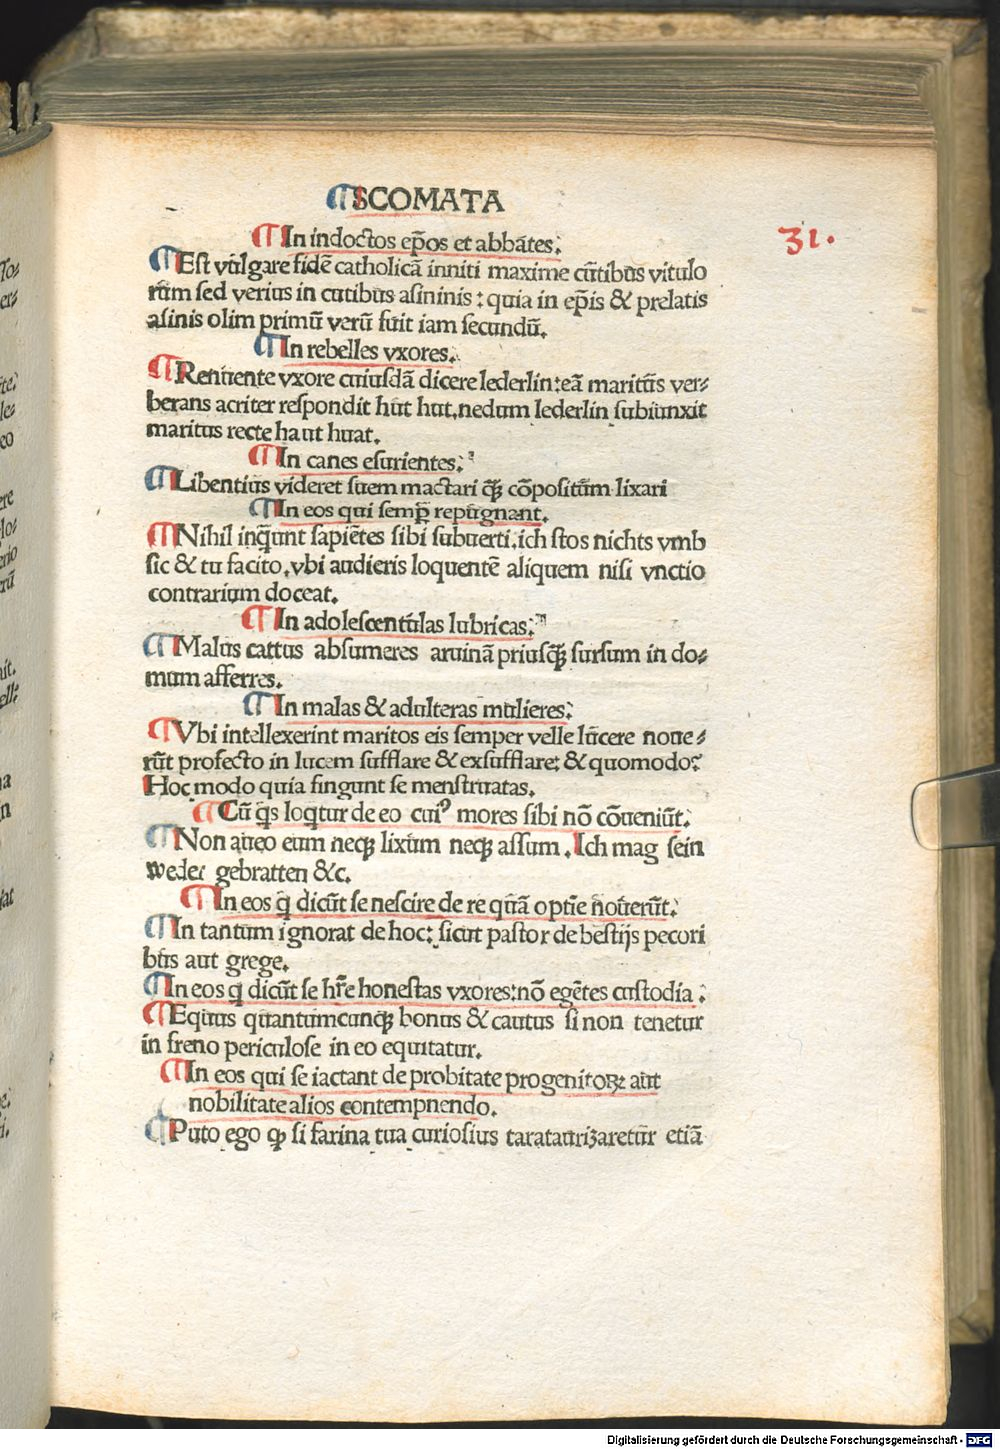 SCOMATA
31.
¶In indoctos ep̄os et abbātes.
¶Est vulgare fidē catholicā inniti maxime cutibus vitulo
rum sed verius in cutibus asininis: quia in ep̄is & prelatis
asinis olim primū verū fuit iam secundū.
¶In rebelles vxores.
¶Renuente vxore cuiusdā dicere lederlin: eā maritus ver⸗
berans acriter respondit hut hut, nedum lederlin subiunxit
maritus recte haut huat.
¶In canes esurientes.
¶Libentius videret suem mactari qꝫ cōpositum lixari
¶In eos qui semp̄ repugnant.
¶Nihil inquūt sapiētes sibi subuerti. ich stos nichts vmb
sic & tu facito, vbi audieris loquentē aliquem nisi vnctio
contrarium doceat.
¶In adolescentulas lubricas.
¶Malus cattus absumeres aruinā priusqꝫ sursum in do⸗
mum afferres.
¶In malas & adulteras mulieres.
¶Vbi intellexerint maritos eis semper velle lucere noue⸗
rūt profecto in lucem sufflare & exsufflare: & quomodo?
Hoc modo quia fingunt se menstruatas.
¶Cū q̄s loq̄tur de eo cuiꝰ mores sibi nō cōueniūt.
¶Non aueo eum neqꝫ lixum neqꝫ assum. Ich mag sein
weder gebratten &c.
¶In eos q̄ dicūt se nescire de re quā optīe nouerūt.
¶In tantum ignorat de hoc: sicut pastor de bestijs pecori
bus aut grege.
¶In eos q̄ dicūt se hr̄e honestas vxores: nō egētes custodia.
¶Equus quantumcunqꝫ bonus & cautus si non tenetur
in freno periculose in eo equitatur.
¶In eos qui se iactant de probitate progenitoꝝ aut
nobilitate alios contempnendo.
¶Puto ego ꝙ si farina tua curiosius tarataurizaretur etiā
Digitalisierung gefördert durch die Deutsche Forschungsgemeinschaft - DFG